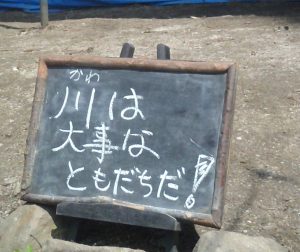 かわ
川は
大事な
ともだちだ!